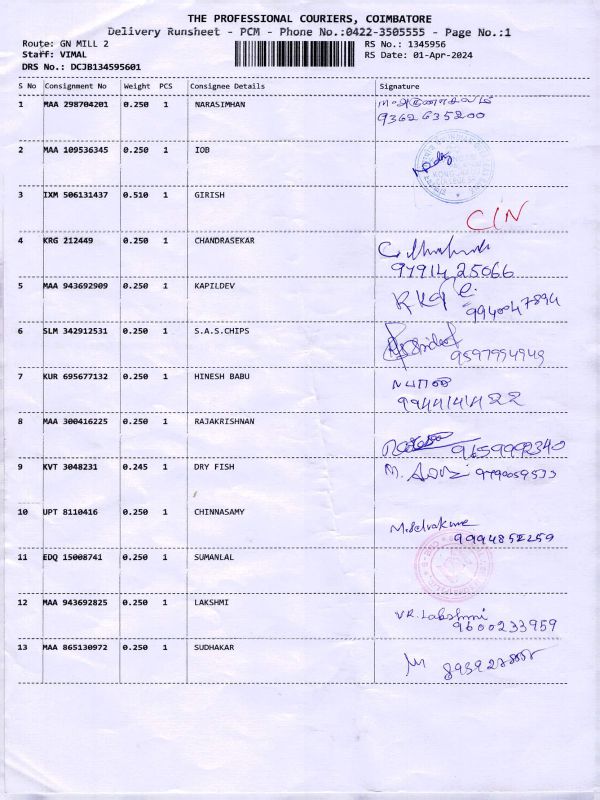 THE PROFESSIONAL COURIERS, COIMBATORE
Delivery Runsheet - PCM - Phone No.:0422-3505555 - Page No.:1
Route: GN MILL 2 RS No.: 1345956
Staff: VIMAL RS Date: 01-Apr-2024
DRS No.: DCJB134595601
S No Consignment No Weight PCS Consignee Details Signature
1 MAA 298704201 0.250 1 NARASIMHAN
9362635200
2 MAA 109536345 0.250 1 IOB
3 IXM 506131437 0.510 1 GIRISH
C/N
4 KRG 212449 0.250 1 CHANDRASEKAR
97914 25066
5 MAA 943692909 0.250 1 KAPILDEV
9940047894
6 SLM 342912531 0.250 1 S.A.S.CHIPS
9597994949
7 KUR 695677132 0.250 1 HINESH BABU
9944141422
8 MAA 300416225 0.250 1 RAJAKRISHNAN
9659992340
9 KVT 3048231 0.245 1 DRY FISH
10 UPT 8110416 0.250 1 CHINNASAMY
M.Selvakumar
9994852259
11 EDQ 15008741 0.250 1 SUMANLAL
12 MAA 943692825 0.250 1 LAKSHMI
VR. Lakshmi
9600233959
13 MAA 865130972 0.250 1 SUDHAKAR